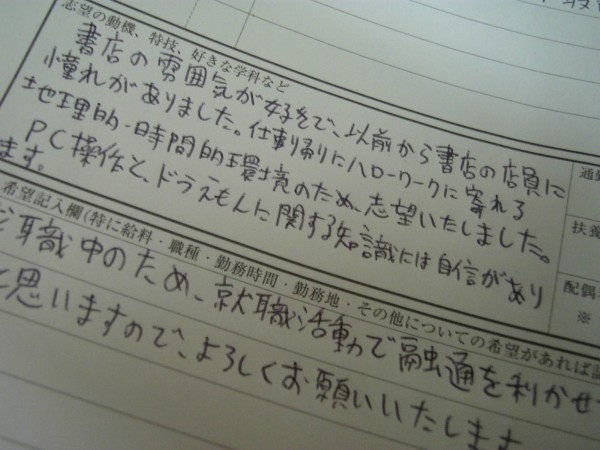 志望の動機、特技、好きな学科など
書店の雰囲気が好きで、以前から書店の店員に
憧れがありました。仕事帰りにハローワークに寄れる
地理的・時間的環境のため、志望いたしました。
PC操作と、ドラえもんに関する知識には自信があり
ます。
通勤
扶養
配偶者
※
希望記入欄(特に給料・職種・勤務時間・勤務地・その他についての希望があれば記
職中のため、就職活動で融通を利かせ
思いますので、よろしくお願いいたします